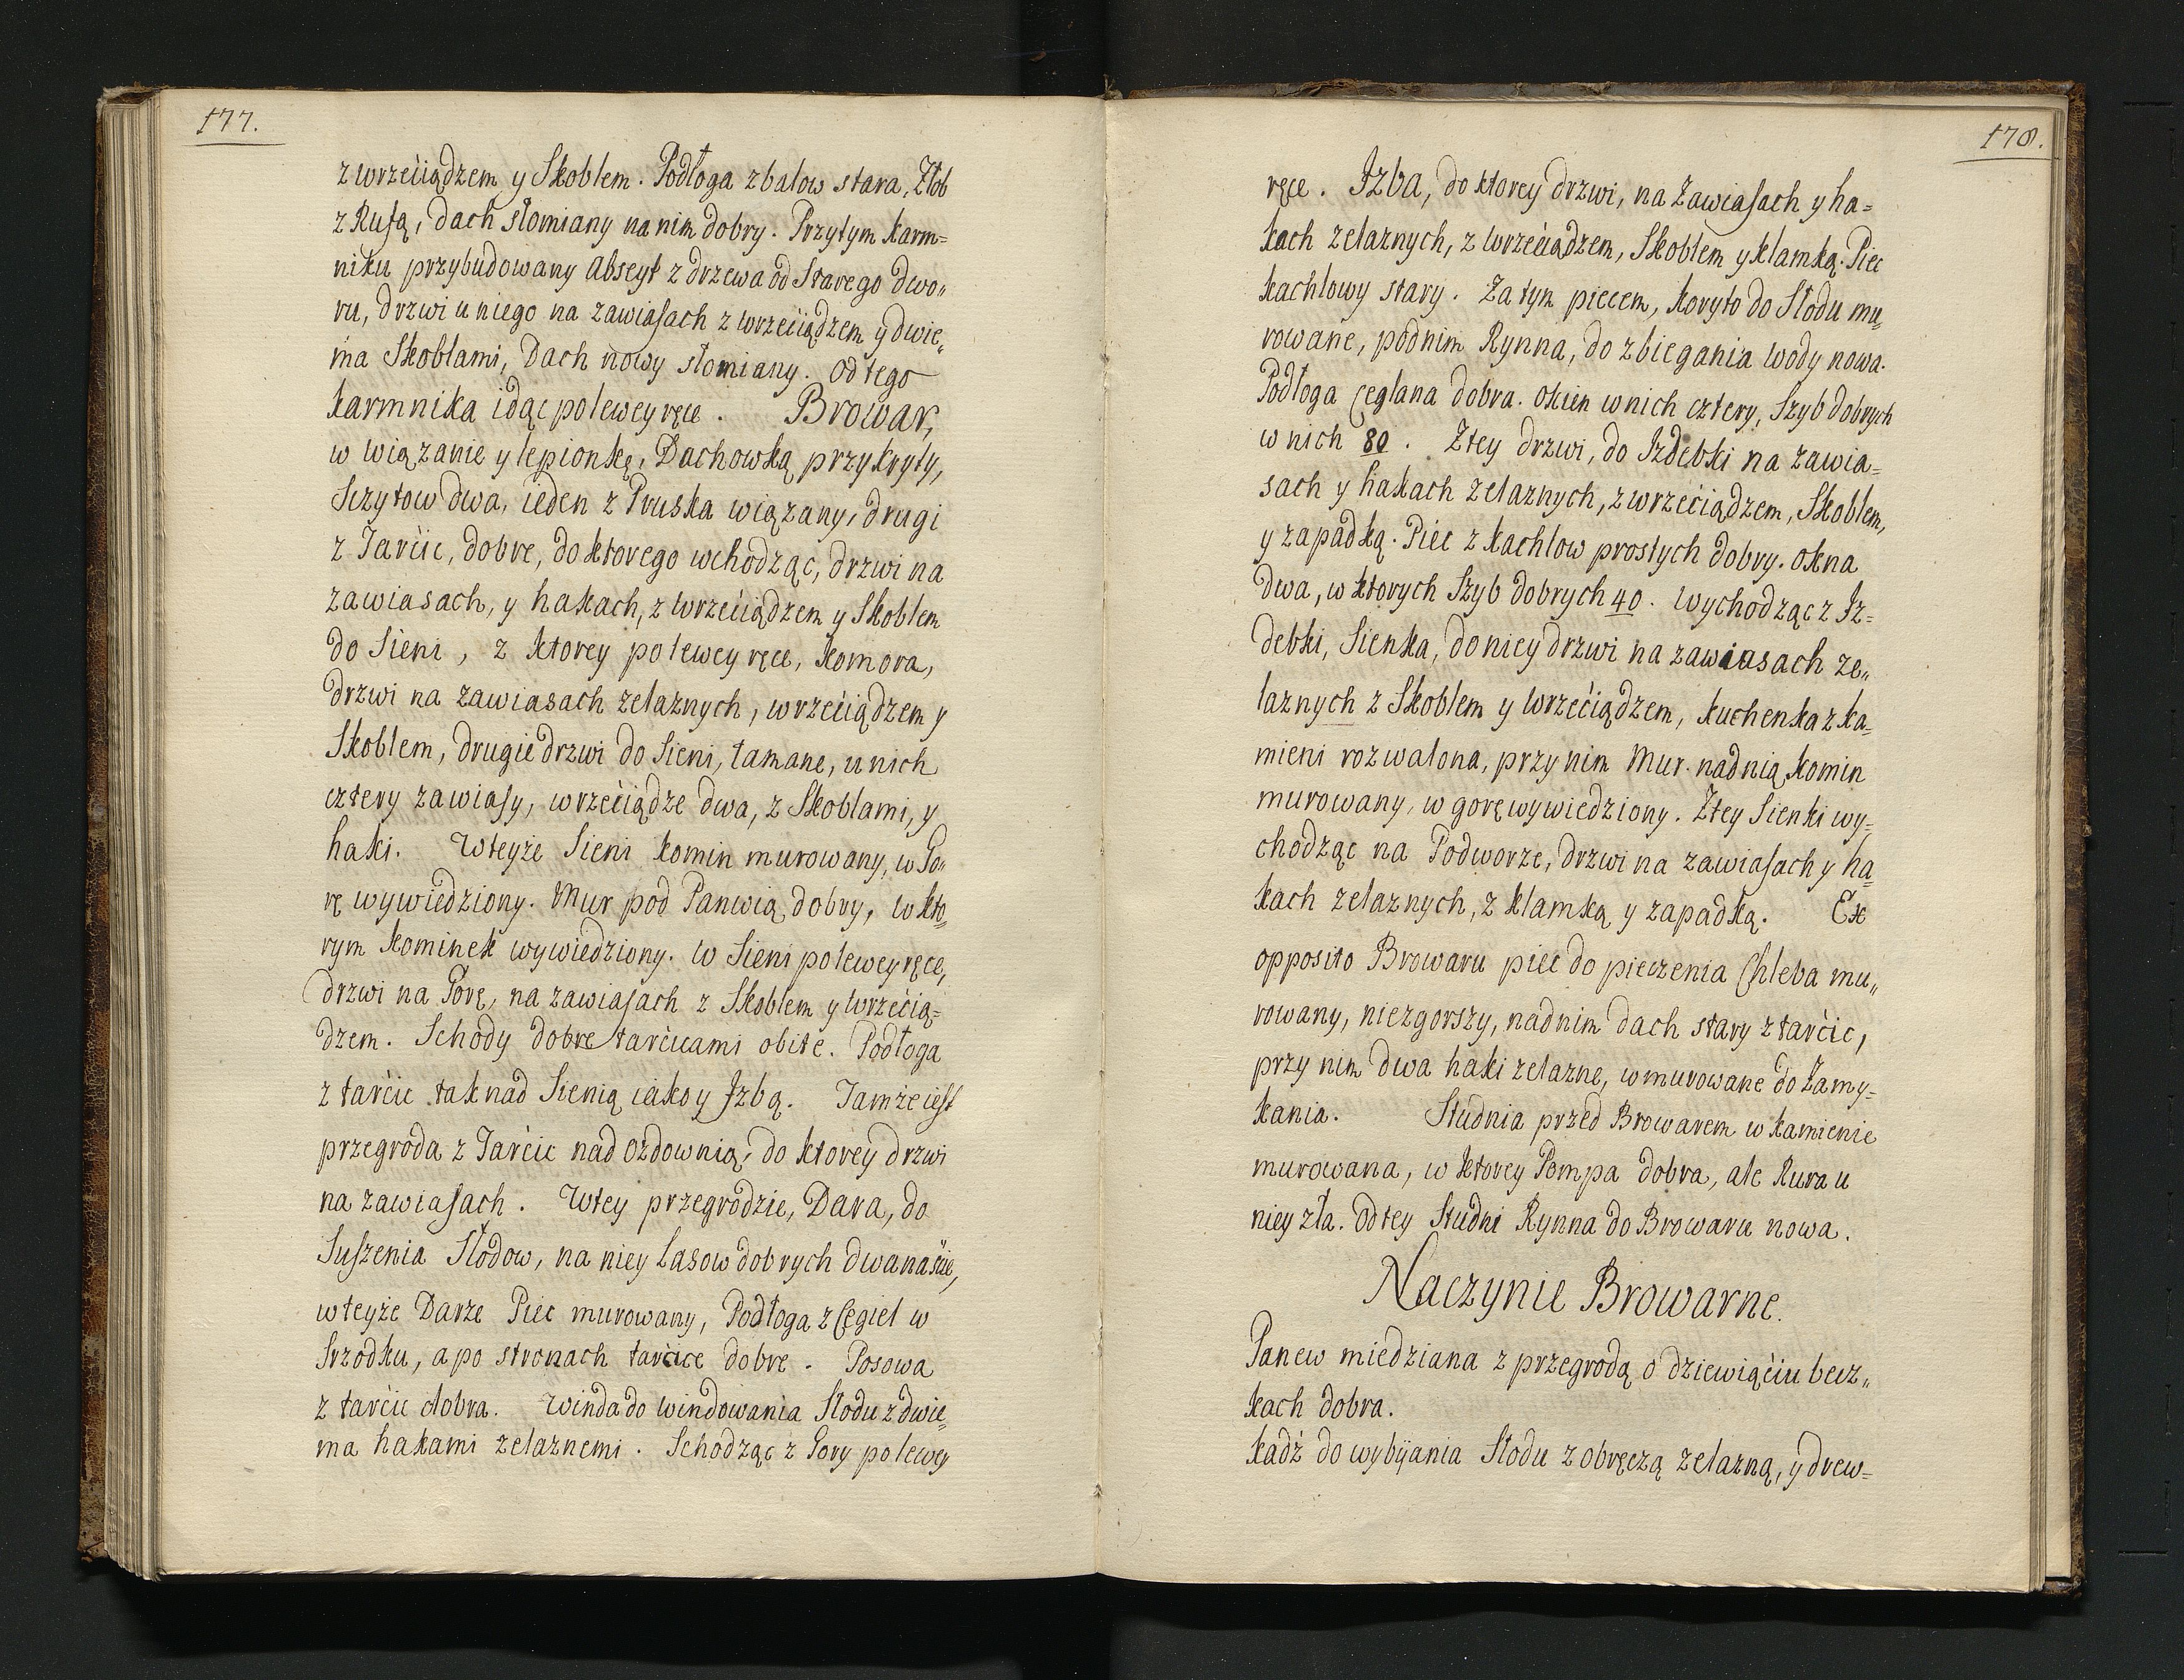 177.
z wrzeciądzem y Skoblem. Podłoga z balow stara, Złob
z Rusą, dach słomiany na nim dobry. Przytym karm=
niku przybudowany Abseyt z drzewa od Starego dwo„
ru, drzwi u niego na zawiasach z wrzeciądzem y dwie„
ma Skoblami, Dach nowy słomiany. Od tego
karmnika idąc po lewey ręce. Browar,
w wiązanie y lepionkę, Dachowką przykryty,
Sczytow dwa, ieden z Pruska wiązany, drugi
z Tarcic, dobre, do ktorego wchodząc, drzwi na
zawiasach, y hakach, z wrzeciądzem y Skoblem
do Sieni, z ktorey po lewey ręce, komora,
drzwi na zawiasach zelaznych, wrzeciądzem y
Skoblem, drugie drzwi do Sieni, łamane, u nich
cztery zawiasy, wrzeciądze dwa, z Skoblami, y
haki. W teyże Sieni komin murowany, w Go„
rę wywiedziony. Mur pod Panwią dobry, w kto„
rym kominek wywiedziony. W Sieni po lewey ręce,
drzwi na Gorę, na zawiasach z Skoblem y wrzecią=
dzem. Schody dobre tarcicami obite. Podłoga
z tarcic tak nad Sienią iako y Jzbą. Tamże iest
przegroda z Tarcic nad Ozdownią, do ktorey drzwi
na zawiasach. W tey przegrodzie, Dara, do
Suszenia Słodow, na niey Lasow dobrych dwanaście,
w teyże Darze Piec murowany, Podłoga z Cegieł w
Srzodku, a po stronach tarcice dobre. Posowa
z tarcic dobra. Winda do windowania Słodu z dwie„
ma hakami zelaznemi. Schodząc z Gory po lewey
178.
ręce. Jzba, do ktorey drzwi, na Zawiasach y ha=
kach zelaznych, z wrzeciądzem, Skoblem y klamką. Piec
kachlowy stary. Za tym piecem, koryto do Słodu mu„
rowane, pod nim Rynna, do zbiegania wody nowa.
Podłoga Ceglana dobra. Okien w nich cztery, Szyb dobrych
w nich 80. Z tey drzwi, do Jzdebki na zawia=
sach y hakach zelaznych, z wrzeciądzem, Skoblem,
y zapadką. Piec z kachlow prostych dobry. Okna
dwa, w ktorych Szyb dobrych 40. Wychodząc z Jz=
debki, Sienka, do niey drzwi na zawiasach ze„
laznych z Skoblem y wrzeciądzem, kuchenka z ka=
mieni rozwalona, przy nim Mur. nad nią komin
murowany, w gorę wywiedziony. Z tey Sienki wy=
chodząc na Podworze, drzwi na zawiasach y ha=
kach zelaznych, z klamką y zapadką. Ex
opposito Browaru piec do pieczenia Chleba mu„
rowany, niezgorszy, nad nim dach stary z tarcic,
przy nim dwa haki zelazne, wmurowane do Zamy=
kania. Studnia przed Browarem w kamienie
murowana, w ktorey Pompa dobra, ale Rura u
niey zła. Od tey Studni Rynna do Browaru nowa.
Naczynie Browarne.
Panew miedziana z przegrodą o dziewiąciu becz„
kach dobra.
kadź do wybijania Słodu z obręczą zelazną, y drew=